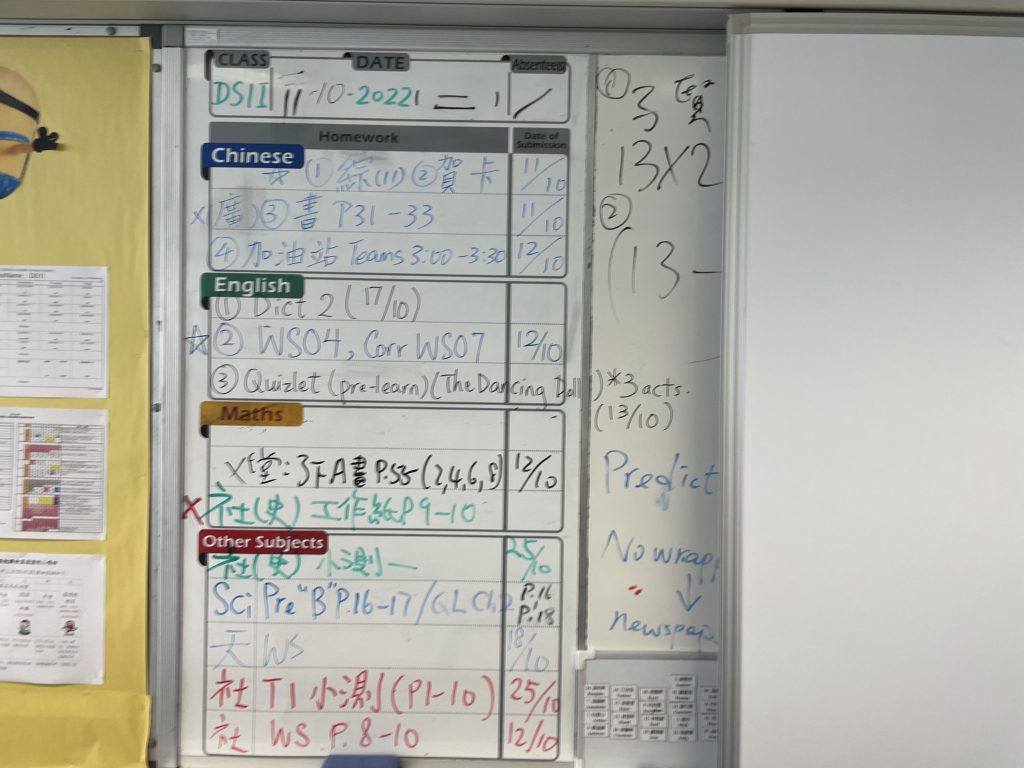 CLASS DATE Absentees
DS11 11-10-2022 二
Homework Date of Submission
Chinese
☆ ① 綜(11) ② 賀卡 11/10
③ 書 P31-33 11/10
④ 加油站 Teams 3:00-3:30 12/10
English
① Dict 2 (17/10)
☆ ② WS04, Corr WS07 12/10
③ Quizlet (pre-learn) (The Dancing Doll) *3 acts.
(13/10)
Maths
X 堂: 3下A書 P.55 (2,4,6,8) 12/10
X 社(史) 工作紙 P.9-10
Other Subjects
社(史) 小測一 25/10
Sci Pre "B" P.16-17/QL Ch2 P.16 P.18
天 WS 18/10
社 T1 小測 (P1-10) 25/10
社 WS P. 8-10 12/10
①
3
13X2
②
(13-
Predict
No wrapp
↓
newspap